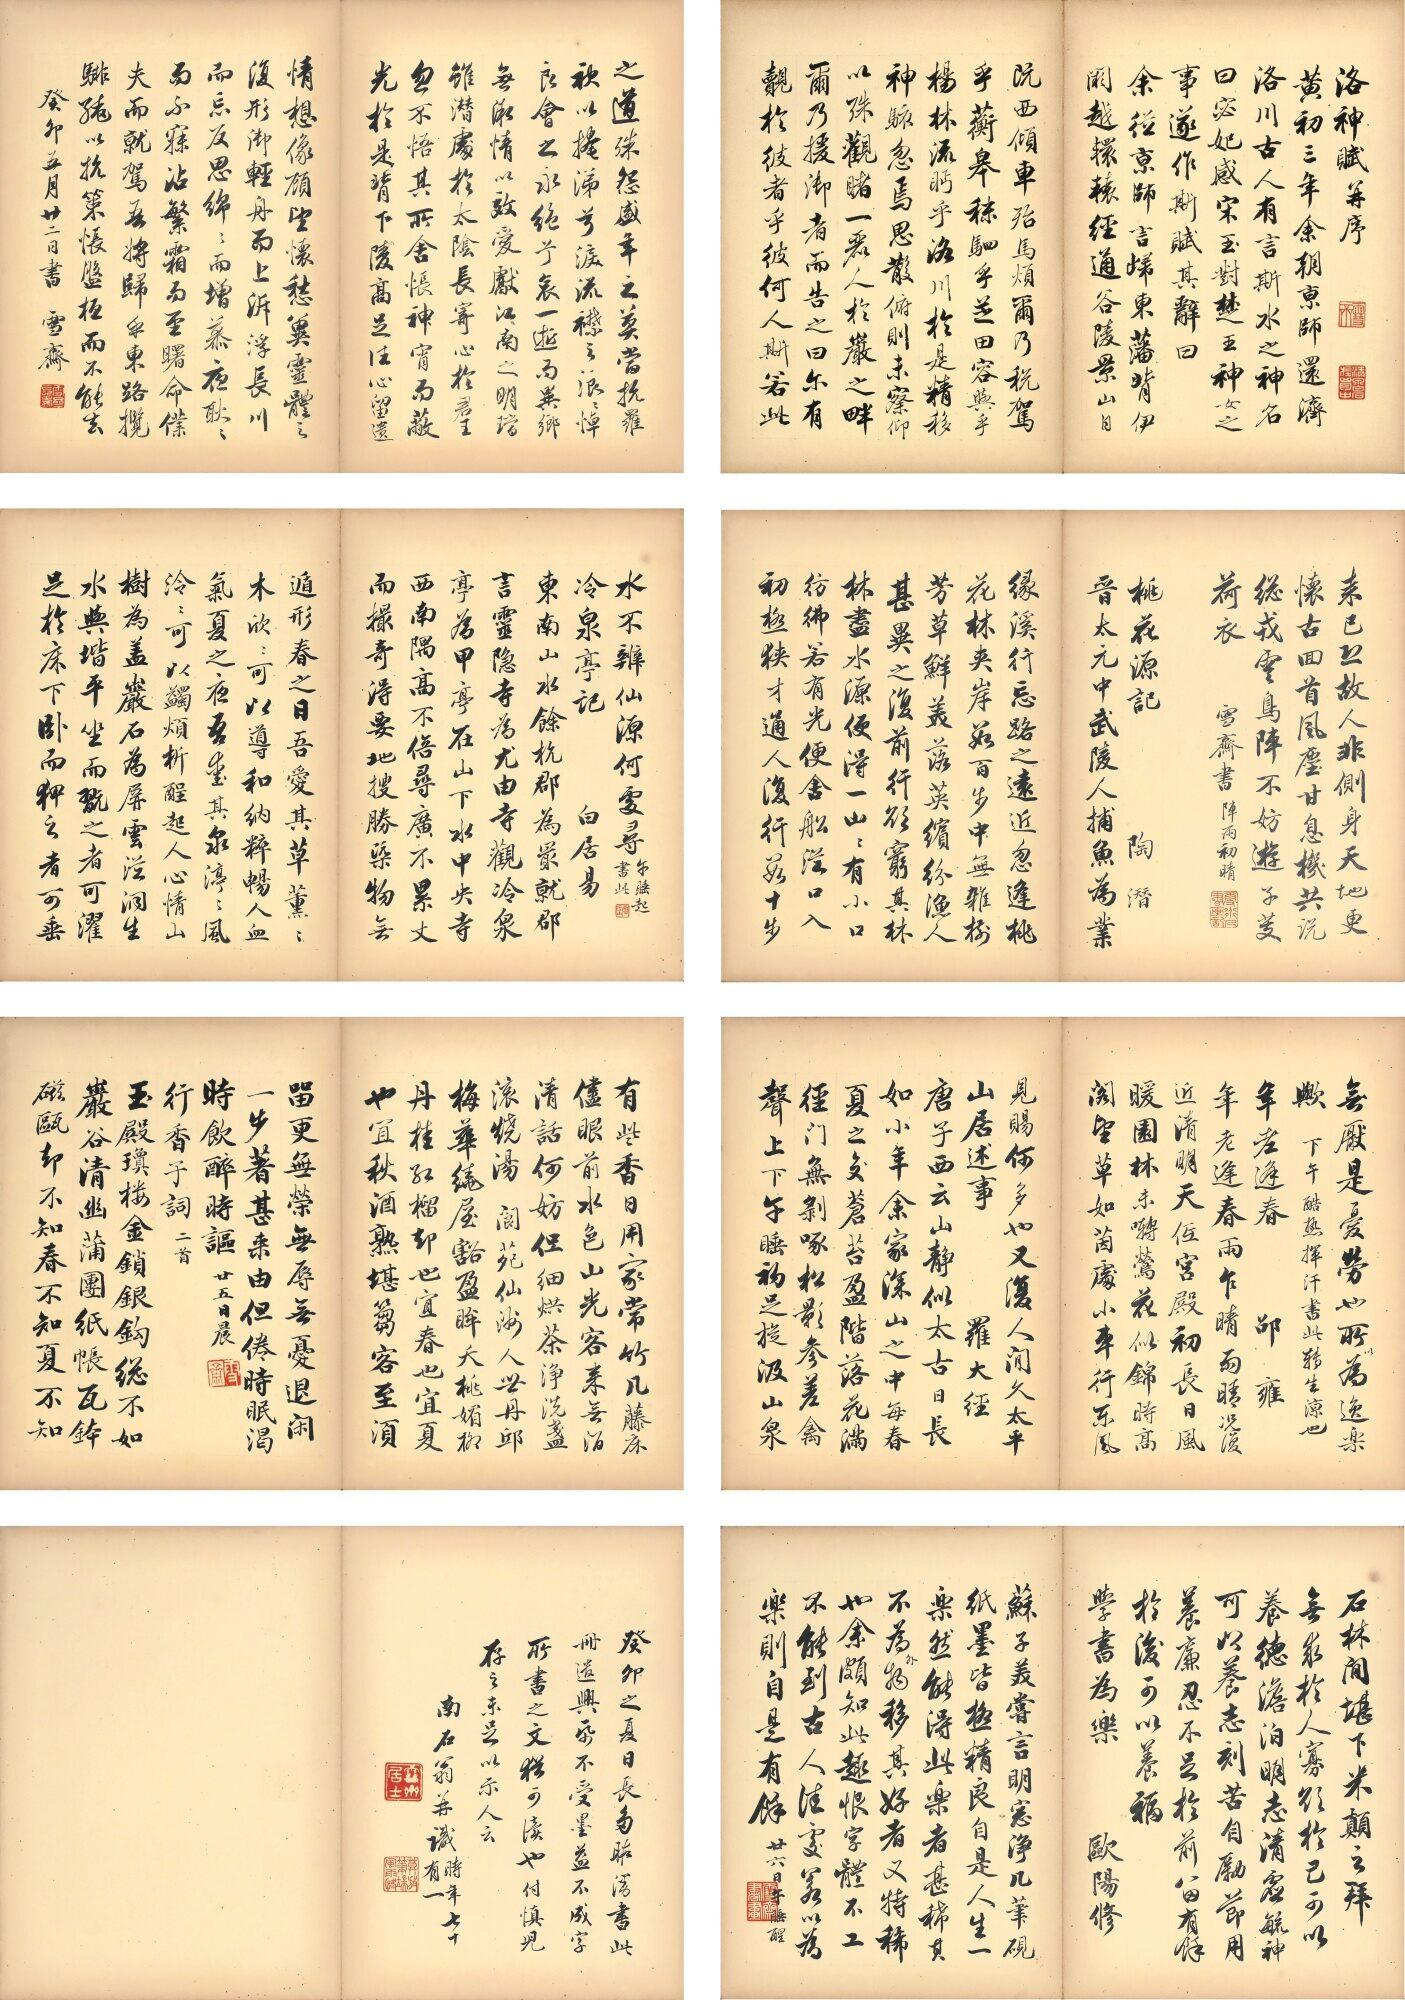 洛神賦并序
黃初三年余朝京師還濟
洛川古人有言斯水之神名
曰宓妃感宋玉對楚王神女之
事遂作斯賦其辭曰
余從京師言歸東藩背伊
闕越轘轅經通谷陵景山日
既西傾車殆馬煩爾乃稅駕
乎蘅皋秣駟乎芝田容與乎
楊林流眄乎洛川於是精移
神駭忽焉思散俯則未察仰
以殊觀睹一麗人於巖之畔
爾乃援御者而告之曰尔有
覿於彼者乎彼何人斯若此
之道殊怨盛年之莫當抗羅
袂以掩涕兮淚流襟之浪〻悼
良會之永絕兮哀一逝而異鄉
無微情以效愛獻江南之明璫
雖潛處於太陰長寄心於君王
忽不悟其所舍悵神宵而蔽
光於是背下陵高足往心留遺
情想像顧望懷愁冀靈體之
復形御輕舟而上泝浮長川
而忘反思綿〻而增慕夜耿〻
而不寐沾繁霜而至曙命僕
夫而就駕吾將歸乎東路攬
騑轡以抗策悵盤桓而不能去
癸卯五月廿二日書 雪齋
来已恐故人非側身天地更
懷古回首風塵甘息機共說
總戎雲鳥陣不妨遊子芰
荷衣 雪齋書 陣雨初晴
桃花源記 陶潛
晉太元中武陵人捕魚為業
緣溪行忘路之遠近忽逢桃
花林夾岸數百步中無雜樹
芳草鮮美落英繽紛漁人
甚異之復前行欲窮其林
林盡水源便得一山〻有小口
彷彿若有光便舍船從口入
初極狹才通人復行數十步
水不辨仙源何處尋 午睡起書此
冷泉亭記 白居易
東南山水餘杭郡為最就郡
言靈隐寺為尤由寺觀冷泉
亭為甲亭在山下水中央寺
西南隅高不倍尋廣不累丈
而撮奇得要地搜勝槩物無
遁形春之日吾愛其草薰〻
木欣〻可以導和納粹暢人血
氣夏之夜吾愛其泉渟〻風
泠〻可以蠲煩析酲起人心情山
樹為蓋巖石為屏雲從洞生
水與堦平坐而翫之者可濯
足於床下臥而狎之者可垂
無厭是憂勞也所以為逸樂
歟 下午酷熱揮汗書此轉生涼也
年老逢春 邵雍
年老逢春雨乍晴雨晴況復
近清明天低宮殿初長日風
暖園林未囀鶯花似錦時高
閣望草如茵處小車行東風
見賜何多也又復人間久太平
山居述事 羅大經
唐子西云山靜似太古日長
如小年余家深山之中每春
夏之交蒼苔盈階落花滿
徑門無剝啄松影參差禽
聲上下午睡初足旋汲山泉
有些香日用家常竹几藤床
儘眼前水色山光客来無酒
清話何妨但細烘茶淨洗盞
滾燒湯 閬苑仙洲人世丹邱
梅華繞屋豁盈眸夭桃媚柳
丹桂紅榴却也宜春也宜夏
也宜秋酒熟堪篘客至須
留更無榮無辱無憂退閑
一步著甚来由但倦時眠渴
時飲醉時謳 廿五日晨
行香子詞 二首
玉殿瓊樓金鎖銀鈎總不如
巖谷清幽蒲團紙帳瓦鉢
磁甌却不知春不知夏不知
石林間堪下米顛之拜
無求於人寡欲於己可以
養德澹泊明志清虛毓神
可以養志刻苦自勵節用
養廉忍不足於前留有餘
於後可以養福
學書為樂 歐陽修
蘇子美嘗言明窓淨几筆硯
紙墨皆極精良自是人生一
樂然能得此樂者甚稀其
不為外物移其好者又特稀
也余頗知此趣恨字體不工
不能到古人佳處若以為
樂則自是有餘 廿六日午睡醒
癸卯之夏日長多暇漫書此
冊遣興帋不受墨益不成字
所書之文猶可讀也付慎兒
存之未足以示人云
南石翁并識時年七十有一